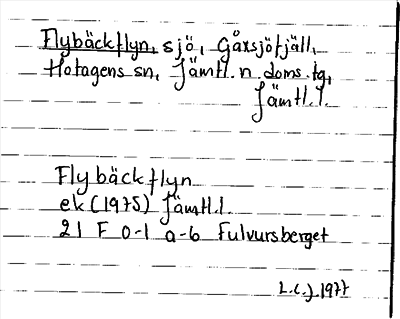 Flybäckflyn, sjö, Gåxsjöfjäll,
Hotagens sn, Jämtl. n. doms.tg,
Jämtl.l.
Flybäckflyn
ek (1975) Jämtl.l
21 F 0-1 a-b Fulvursberget
L.C.J. 1977